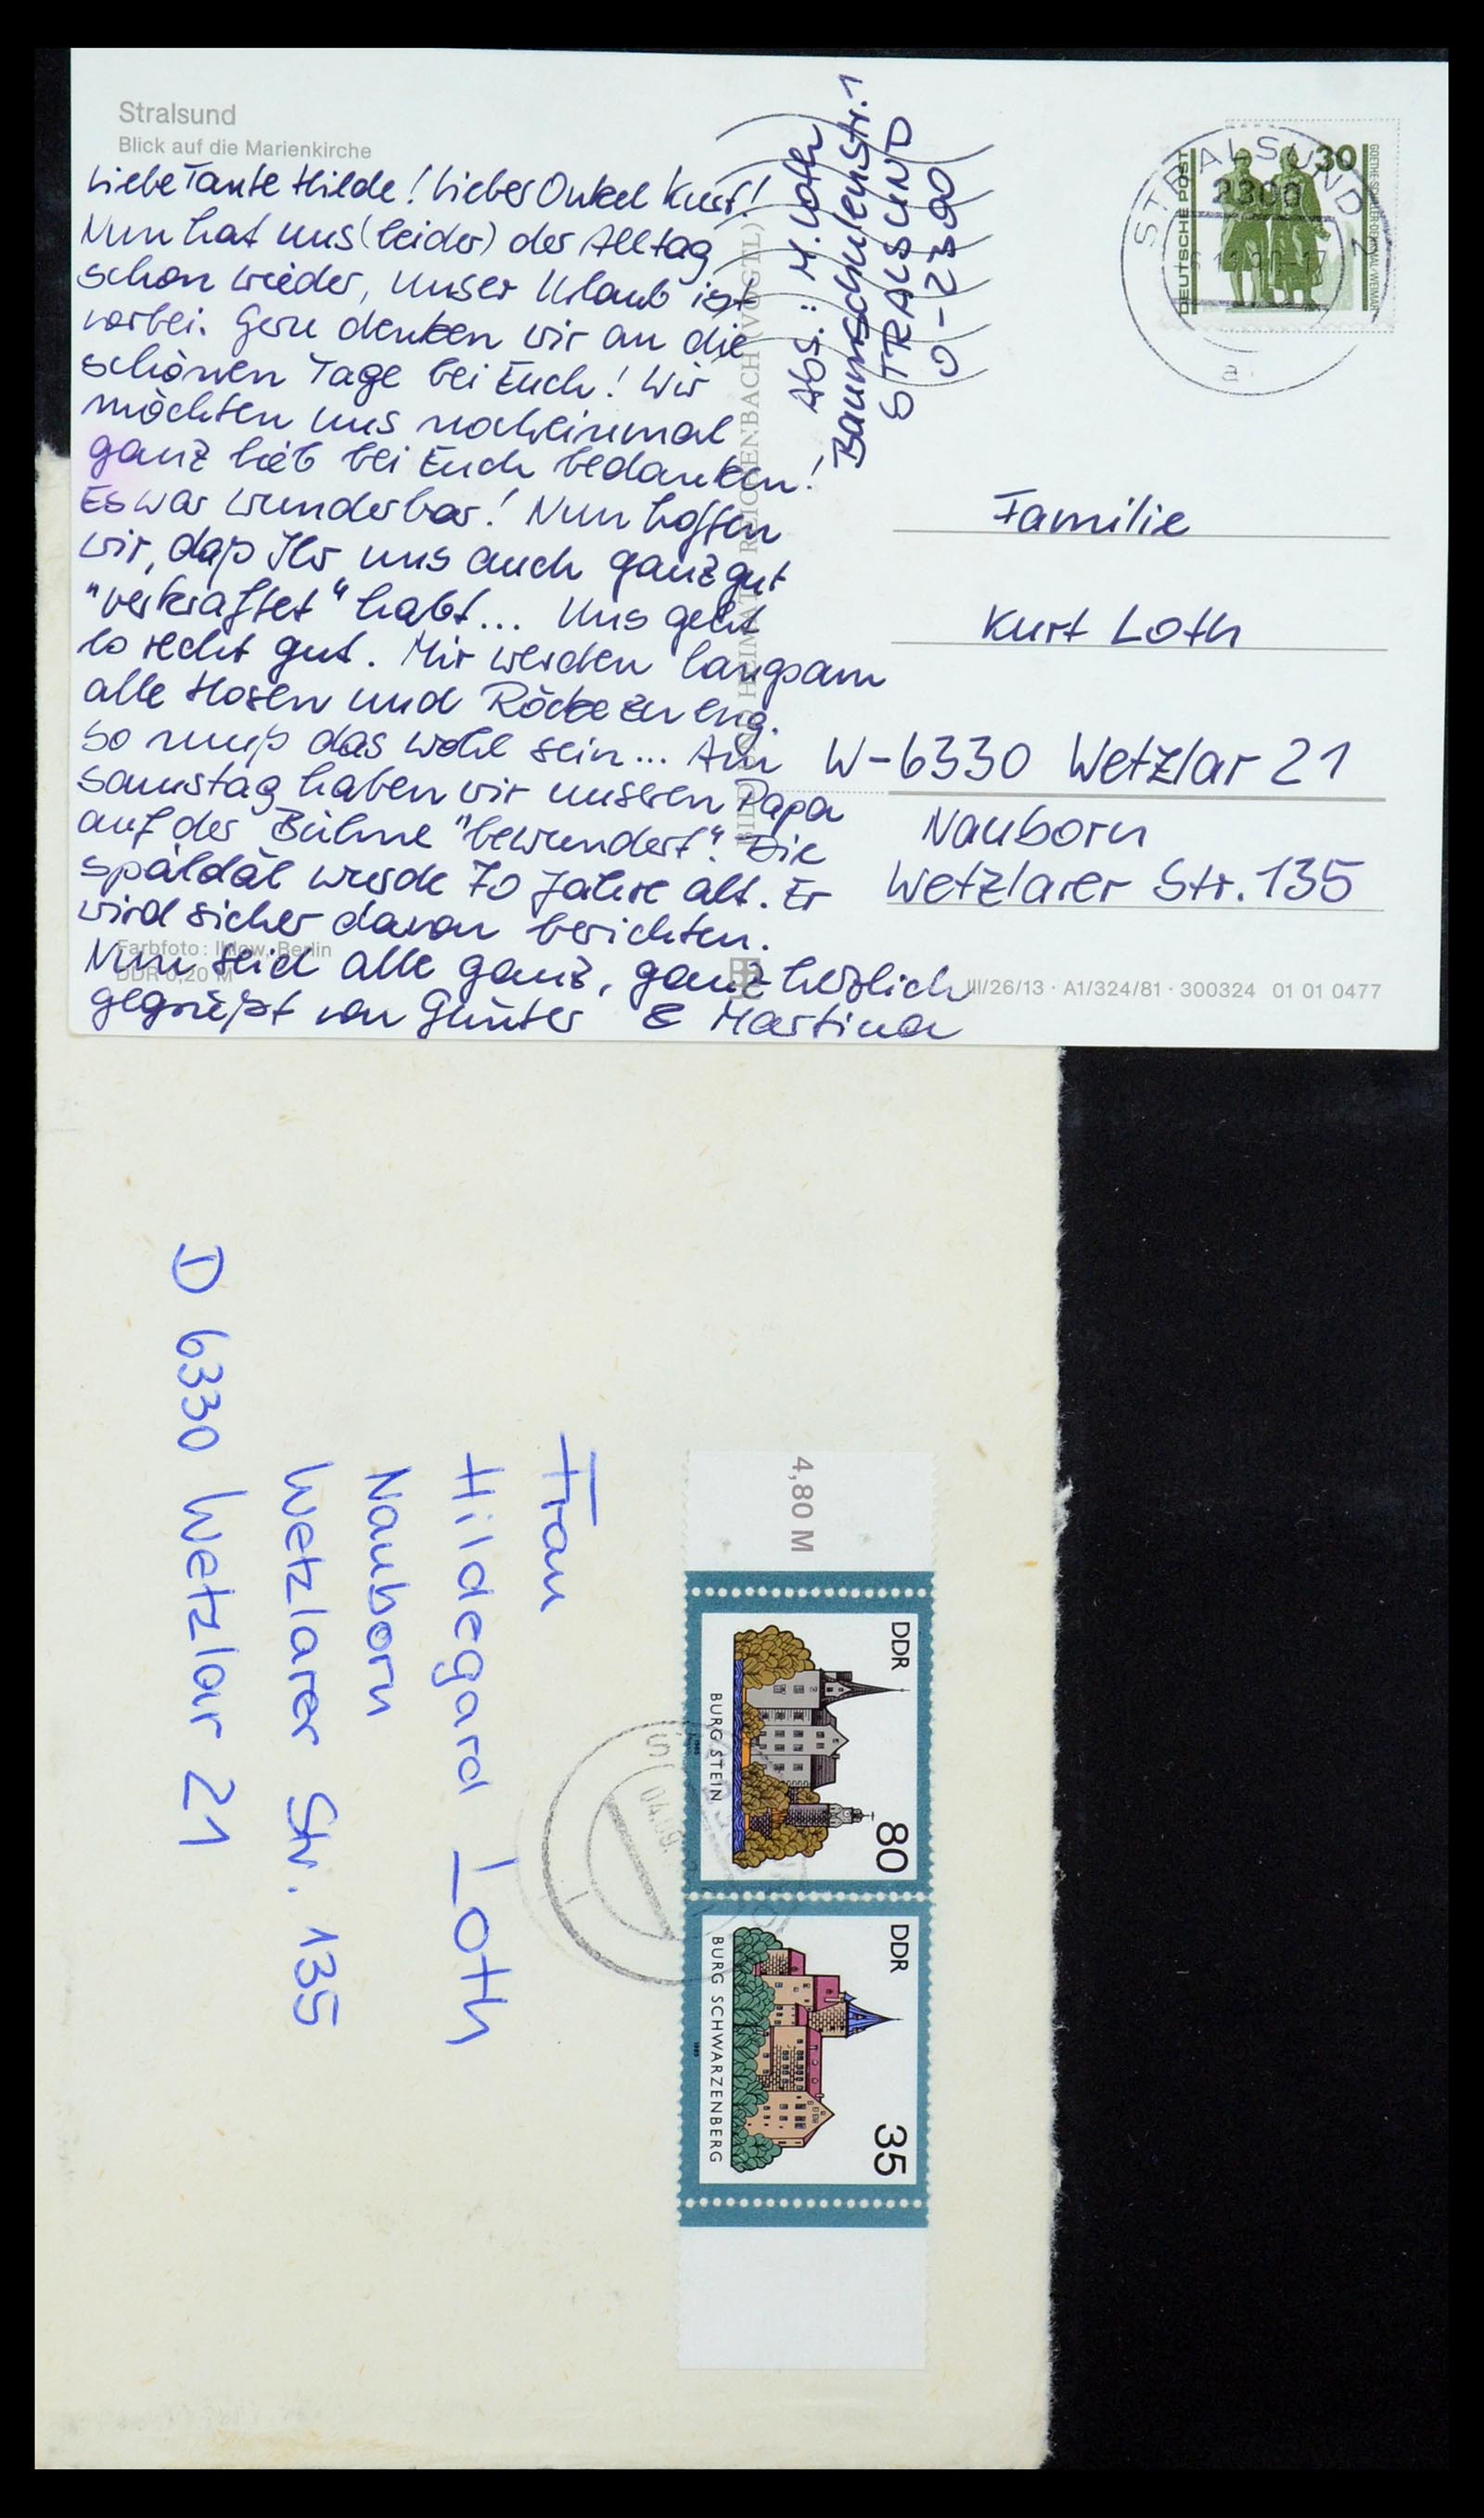 Stralsund
Blick auf die Marienkirche
Liebe Tante Hilde! Lieber Onkel Kurt!
Nun hat uns (leider) der Alltag
schon wieder, unser Urlaub ist
vorbei. Gern denken wir an die
schönen Tage bei Euch! Wir
möchten uns nocheinmal
ganz lieb bei Euch bedanken!
Es war wunderbar! Nun hoffen
wir, daß Ihr uns auch ganz gut
"verkraftet" habt... Uns geht
es recht gut. Mir werden langsam
alle Hosen und Röcke zu eng.
So muß das wohl sein... Am
Samstag haben wir unseren Papa
auf der Bühne "bewundert". Die
späldäl wurde 70 Jahre alt. Er
wird sicher davon berichten.
Nun seid alle ganz, ganz herzlich
gegrüßt von Günter & Martina
Farbfoto: Ihlow, Berlin
DDR 0,20 M
BILD UND HEIMAT REICHENBACH (VOGTL)
Abs.: M. Loth
Baumschulenstr. 1
STRALSUND
O-2300
DEUTSCHE POST
30
GOETHE-SCHILLER-DENKMAL · WEIMAR
STRALSUND 2
2300
a
Familie
Kurt Loth
W-6330 Wetzlar 21
Nauborn
Wetzlarer Str. 135
III/26/13 · A1/324/81 · 300324 01 01 0477
4,80 M
DDR
80
BURG STEIN
1985
DDR
35
BURG SCHWARZENBERG
1985
04.09.
Frau
Hildegard Loth
Nauborn
Wetzlarer Str. 135
D 6330 Wetzlar 21